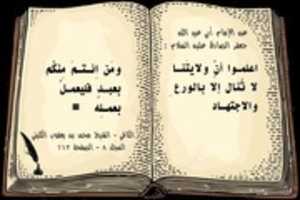 عن الإمام أبي عبد الله
جعفر الصادق عليه السلام :
اعلموا أنّ ولايتنا
لا تُنال إلا بالورع
والاجتهاد
ومَن ائتــم مِنكُم
بعبدٍ فليعملْ
بعمله
الكافي - الشيخ محمد بن يعقوب الكليني
المجلد ٨ - الصفحة ٢١٢